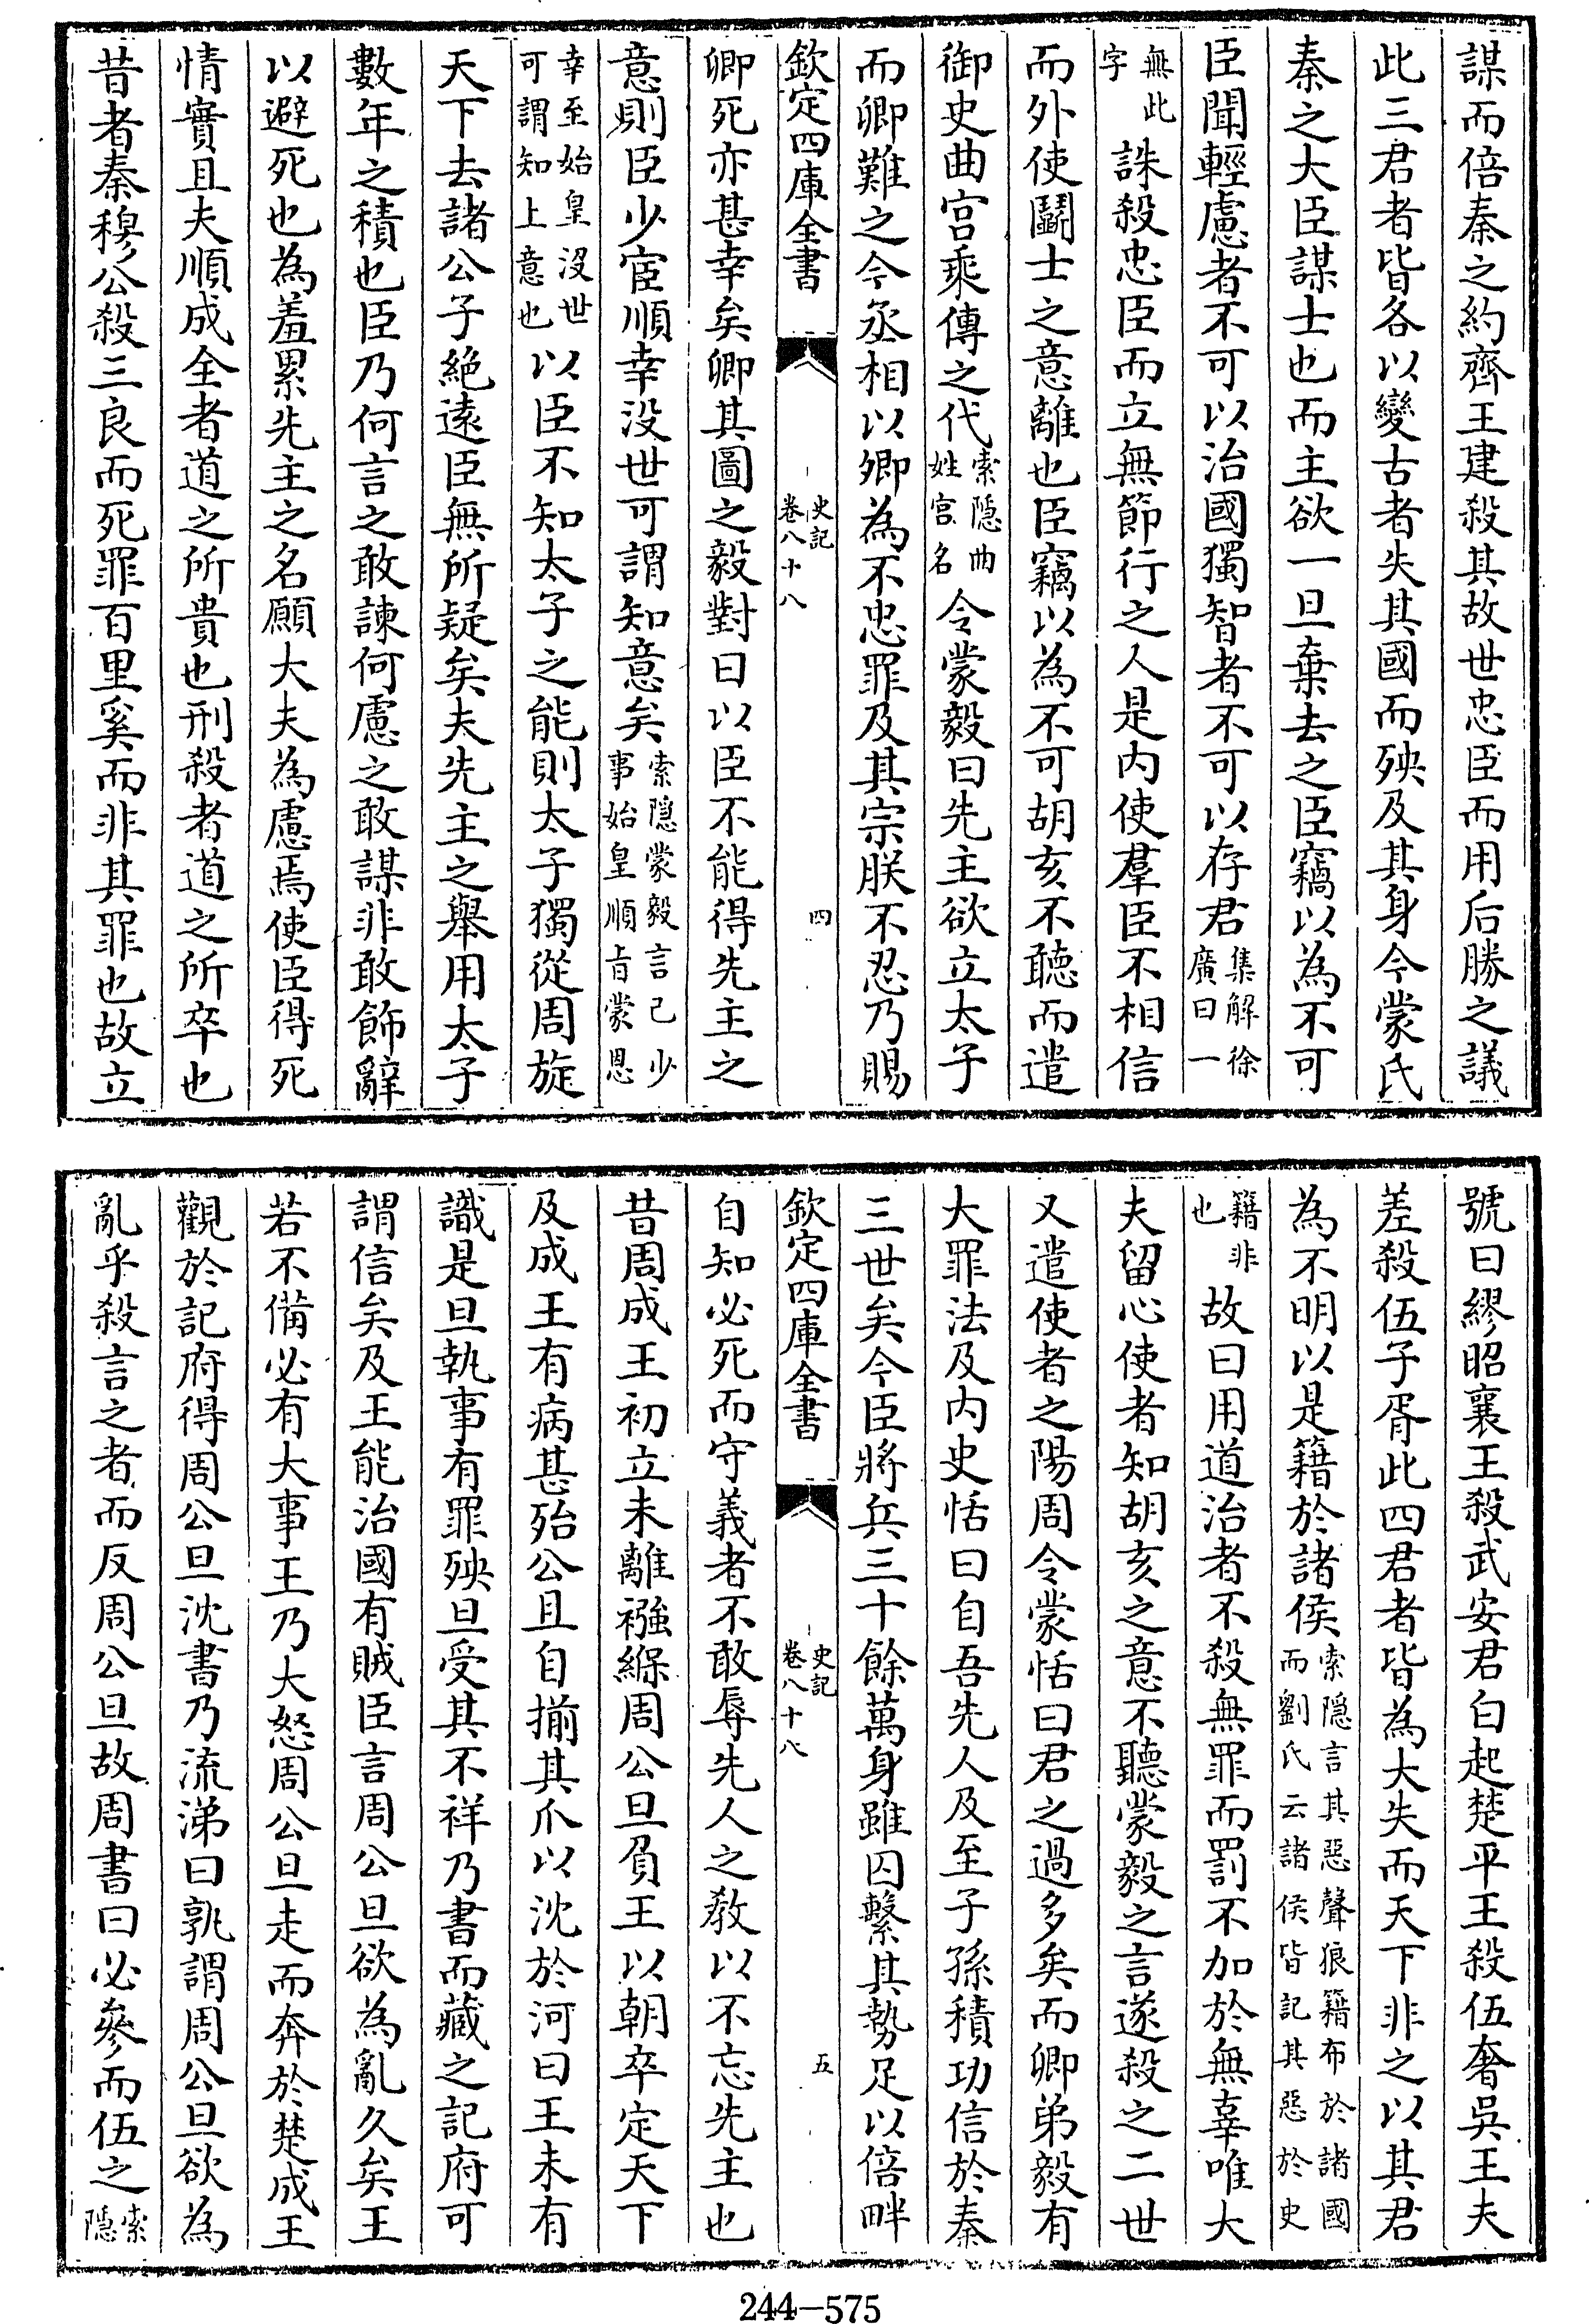 謀而倍秦之約齊王建殺其故世忠臣而用后勝之議
此三君者皆各以變古者失其國而殃及其身今蒙氏
秦之大臣謀士也而主欲一旦棄去之臣竊以為不可
臣聞輕慮者不可以治國獨智者不可以存君集解徐廣曰一
無此字誅殺忠臣而立無節行之人是内使羣臣不相信
而外使鬭士之意離也臣竊以為不可胡亥不聽而遣
御史曲宫乘傳之代索隠曲姓宫名令蒙毅曰先主欲立太子
而卿難之今丞相以卿為不忠罪及其宗朕不忍乃賜
欽定四庫全書
史記卷八十八
四
卿死亦甚幸矣卿其圖之毅對曰以臣不能得先主之
意則臣少宦順幸没世可謂知意矣索隠蒙毅言己少事始皇順㫖蒙恩
幸至始皇沒世可謂知上意也以臣不知太子之能則太子獨從周旋
天下去諸公子絶遠臣無所疑矣夫先主之舉用太子
數年之積也臣乃何言之敢諫何慮之敢謀非敢飾辭
以避死也為羞累先主之名願大夫為慮焉使臣得死
情實且夫順成全者道之所貴也刑殺者道之所卒也
昔者秦穆公殺三良而死罪百里奚而非其罪也故立
號曰繆昭襄王殺武安君白起楚平王殺伍奢吳王夫
差殺伍子胥此四君者皆為大失而天下非之以其君
為不明以是籍於諸侯索隠言其惡聲狼籍布於諸國而劉氏云諸侯皆記其惡於史
籍非也故曰用道治者不殺無罪而罰不加於無辜唯大
夫留心使者知胡亥之意不聽蒙毅之言遂殺之二世
又遣使者之陽周令蒙恬曰君之過多矣而卿弟毅有
大罪法及内史恬曰自吾先人及至子孫積功信於秦
三世矣今臣將兵三十餘萬身雖囚繫其勢足以倍畔
欽定四庫全書
史記卷八十八
五
自知必死而守義者不敢辱先人之敎以不忘先主也
昔周成王初立未離襁緥周公旦負王以朝卒定天下
及成王有病甚殆公旦自揃其爪以沈於河曰王未有
識是旦執事有罪殃旦受其不祥乃書而藏之記府可
謂信矣及王能治國有賊臣言周公旦欲為亂久矣王
若不備必有大事王乃大怒周公旦走而奔於楚成王
觀於記府得周公旦沈書乃流涕曰孰謂周公旦欲為
亂乎殺言之者而反周公旦故周書曰必參而伍之索隠
244—575